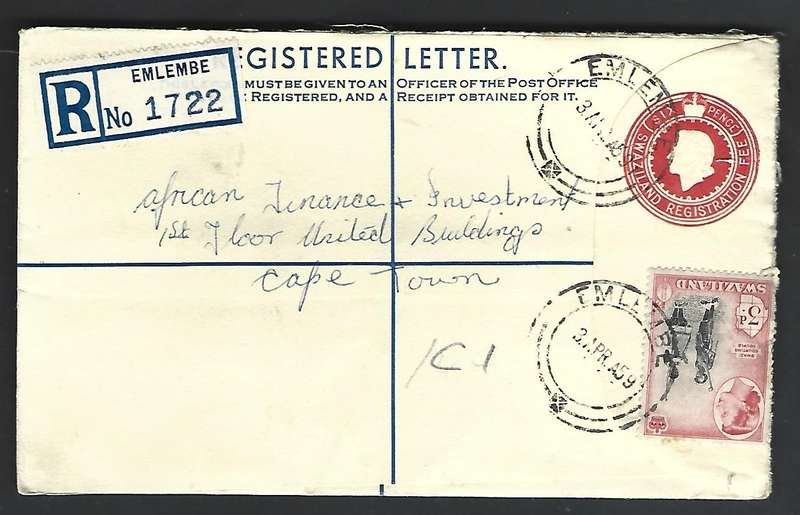 REGISTERED LETTER.
MUST BE GIVEN TO AN OFFICER OF THE POST OFFICE
REGISTERED, AND A RECEIPT OBTAINED FOR IT.
R EMLEMBE
No 1722
SIX PENCE
SWAZILAND REGISTRATION FEE
EMLEMBE
3 APR 59
African Finance + Investment
1st Floor United Buildings
Cape Town
KI
EMLEMBE
3 APR 59
3d
SWAZILAND